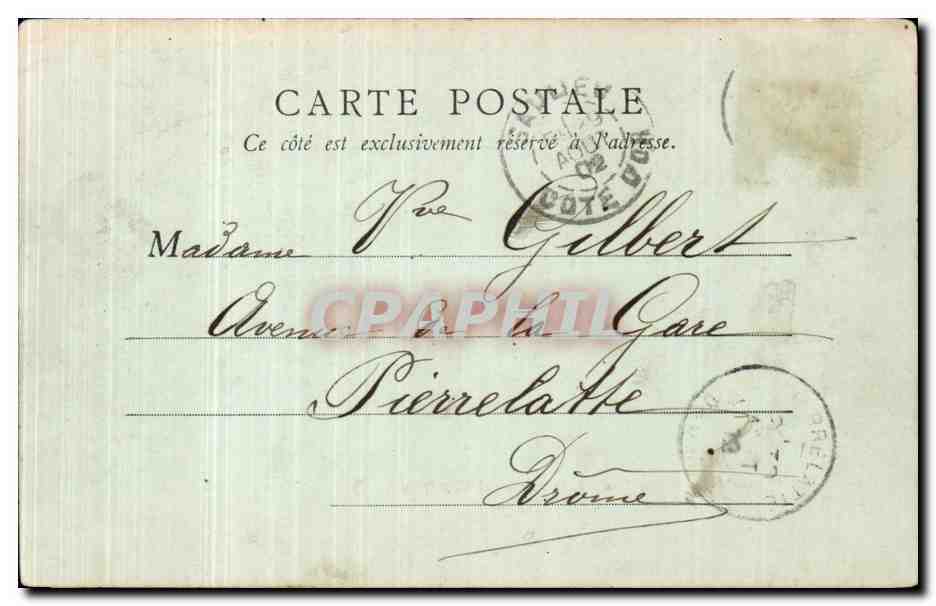 CARTE POSTALE
Ce côté est exclusivement réservé à l'adresse.
SAULIEU
AOUT
02
COTE D'OR
Madame Vve Gilbert
Avenue de la Gare
CPAPHIL
Pierrelatte
Drôme